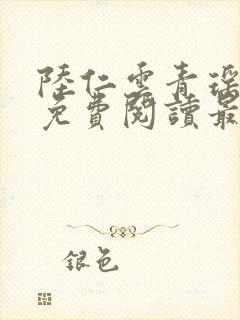 陸仁雲青瑤
免費閱讀最
銀色